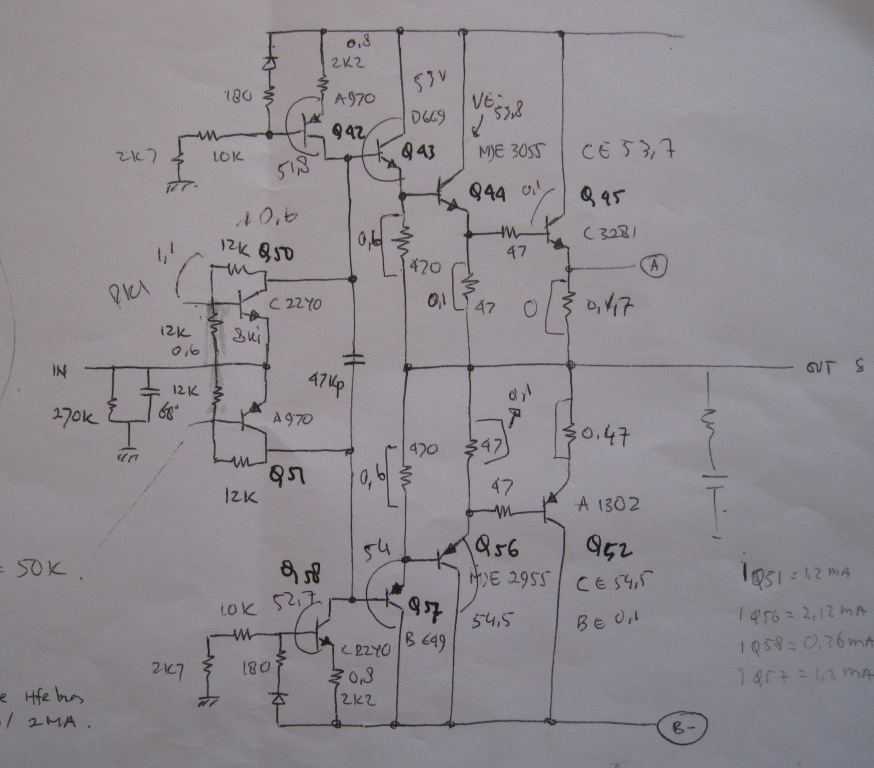 0,8
2K2
53V
180
A970
D669
VE:
53,8
Q42
Q43
MJE 3055
CE 53,7
2K7
10K
51,8
Q44
0,1
Q45
C3281
47
10,6
12K
Q50
0,6
420
A
1,1
C2240
0,1
47
0
12K
0,6
IN
47Kp
OUT S
12K
270K
68
A970
0,1
0.47
420
47
Q51
12K
0,6
47
A 1302
54
Q56
Q52
= 50K.
Q58
MJE 2955
CE 54,5
IQ51 = 1,2 MA
52,7
Q57
10K
54,5
BE 0,1
IQ56 = 2,12 MA
B 649
IQ58 = 0,36 MA
C2240
2K7
180
0,8
IQ57 = 1,2 MA
2K2
2MA.
B-